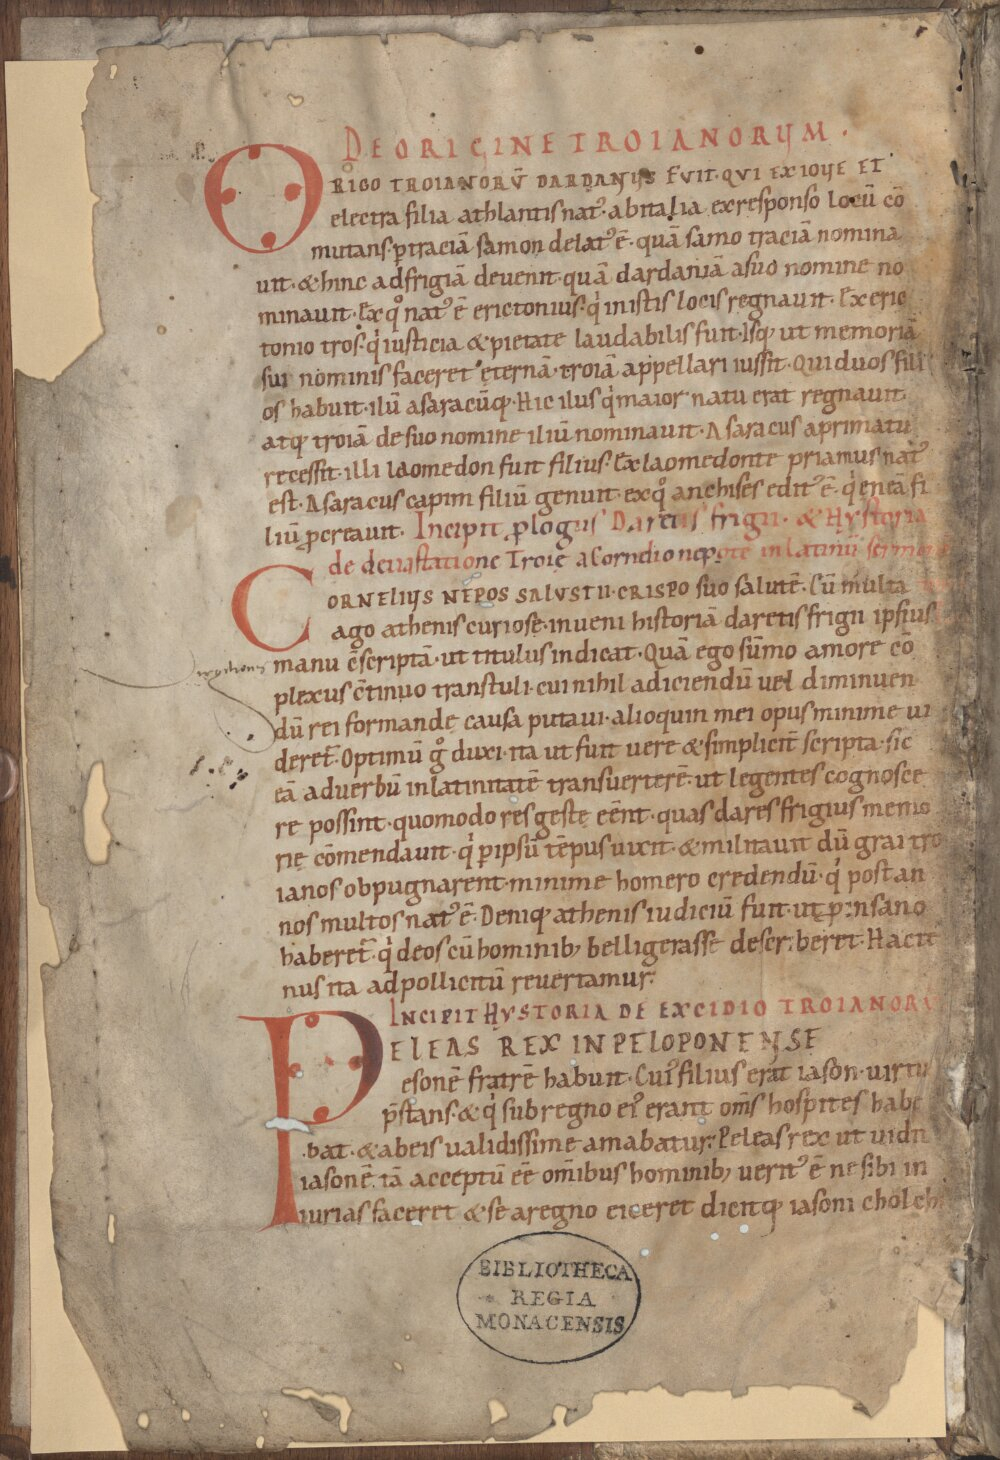 DE ORIGINE TROIANORUM.
ORIGO TROIANORŪ DARDANUS FUIT. QUI EX IOUE ET
electra filia athlantis nat᾽. ab italia ex responso locū cō
mutans. ꝑ traciā samon delat᾽ ē. quā samo traciā nomina
uit. & hinc ad frigiā deuenit. quā dardaniā a suo nomine no
minauit. Ex qͦ nat᾽ ē erictonius. qͥ in istis locis regnauit. Ex eric
tonio tros. qͥ iusticia & pietate laudabilis fuit. Isq; ut memoriā
sui nominis faceret eternā. troiā appellari iussit. Qui duos fili
os habuit. ilū asaracūq;. Hic ilus qͥ maior natu erat regnauit
atq; troiā de suo nomine iliū nominauit. Asaracus a primatu
recessit. illi laomedon fuit filius. Ex laomedonte priamus nat᾽
est. Asaracus capim filiū genuit. ex qͦ anchises edit᾽ ē. qͥ eneā fi
liū ꝓcreauit. Incipit ꝓlogus Daretis frigii. & Hystoria
de deuastatione Troię a Cornelio nepote in latinū sermonē
CORNELIUS NEPOS SALUSTII CRISPO suo salutē. Cū multa
ago athenis curiose. inueni historiā daretis frigii ipsius
manu c̄scriptā. ut titulus indicat. Quā ego sūmo amore cō
plexus c̄tinuo transtuli. cui nihil adiciendū uel diminuen
dū rei formandę causa putaui. alioquin mei opus minime ui
deret̄. Optimū gͦ duxi. ita ut fuit uere & simplicit̄ scripta. sic
eā ad uerbū in latinitatē transuerterē. ut legentes cognosce
re possint. quomodo res gestę eēnt. quas dares frigius memo
rię cōmendauit. qͥ ꝑ ipsū tēpus uixit. & militauit dū grai tro
ianos obpugnarent. minime homero credendū. qͥ post an
nos multos nat᾽ ē. Deniq; athenis iudiciū fuit. ut ꝓ insano
haberet̄. qͥ deos cū hominib; belligerasse describeret. Hacte
nus ita ad pollicitū reuertamur.
INCIPIT HYSTORIA DE EXCIDIO TROIANORŪ
PELEAS REX IN PELOPONENSE
esonē fratrē habuit. Cui᾽ filius erat iason. uirtu
p̄stans. & qͥ sub regno ei᾽ erant om̄s hospites habe
bat. & ab eis ualidissime amabatur. Peleas rex ut uidit
iasonē tā acceptū eē om̄ibus hominib; uerit᾽ ē ne sibi in
iurias faceret & se a regno eiceret dicitq; iasoni cholch
BIBLIOTHECA
REGIA
MONACENSIS